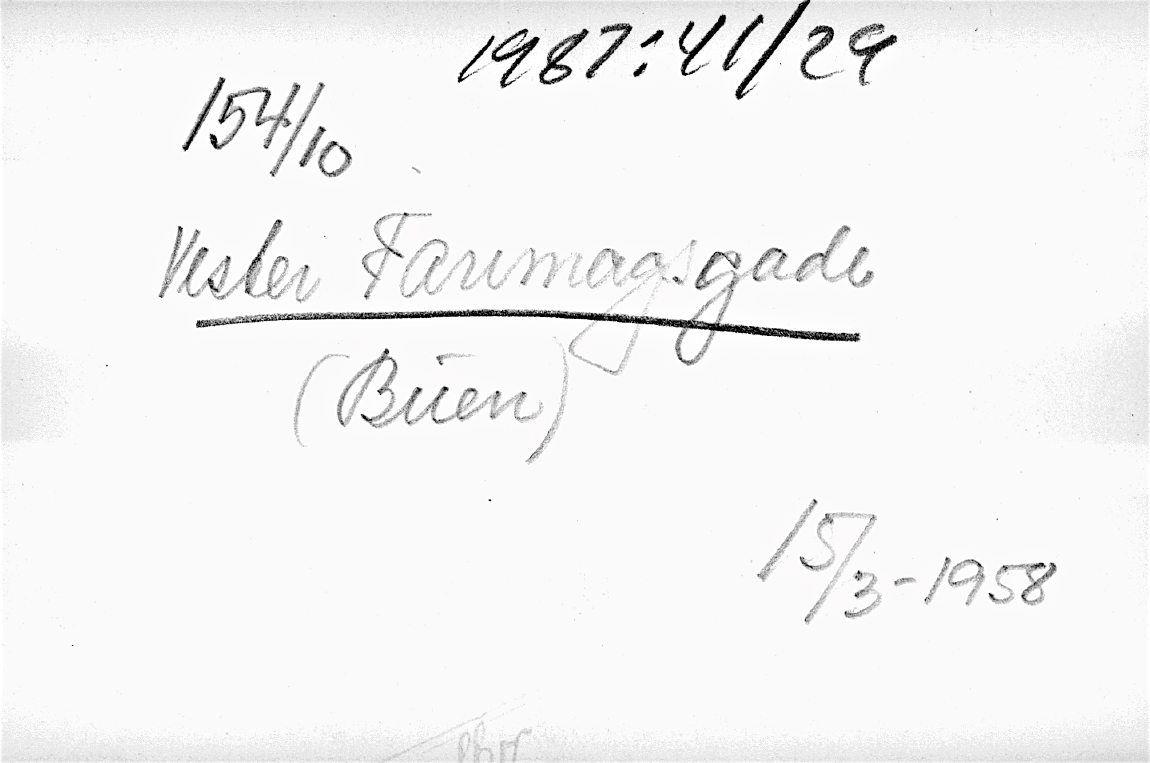 1987:41/29
154/10
Vester Farimagsgade
(Buen)
15/3-1958